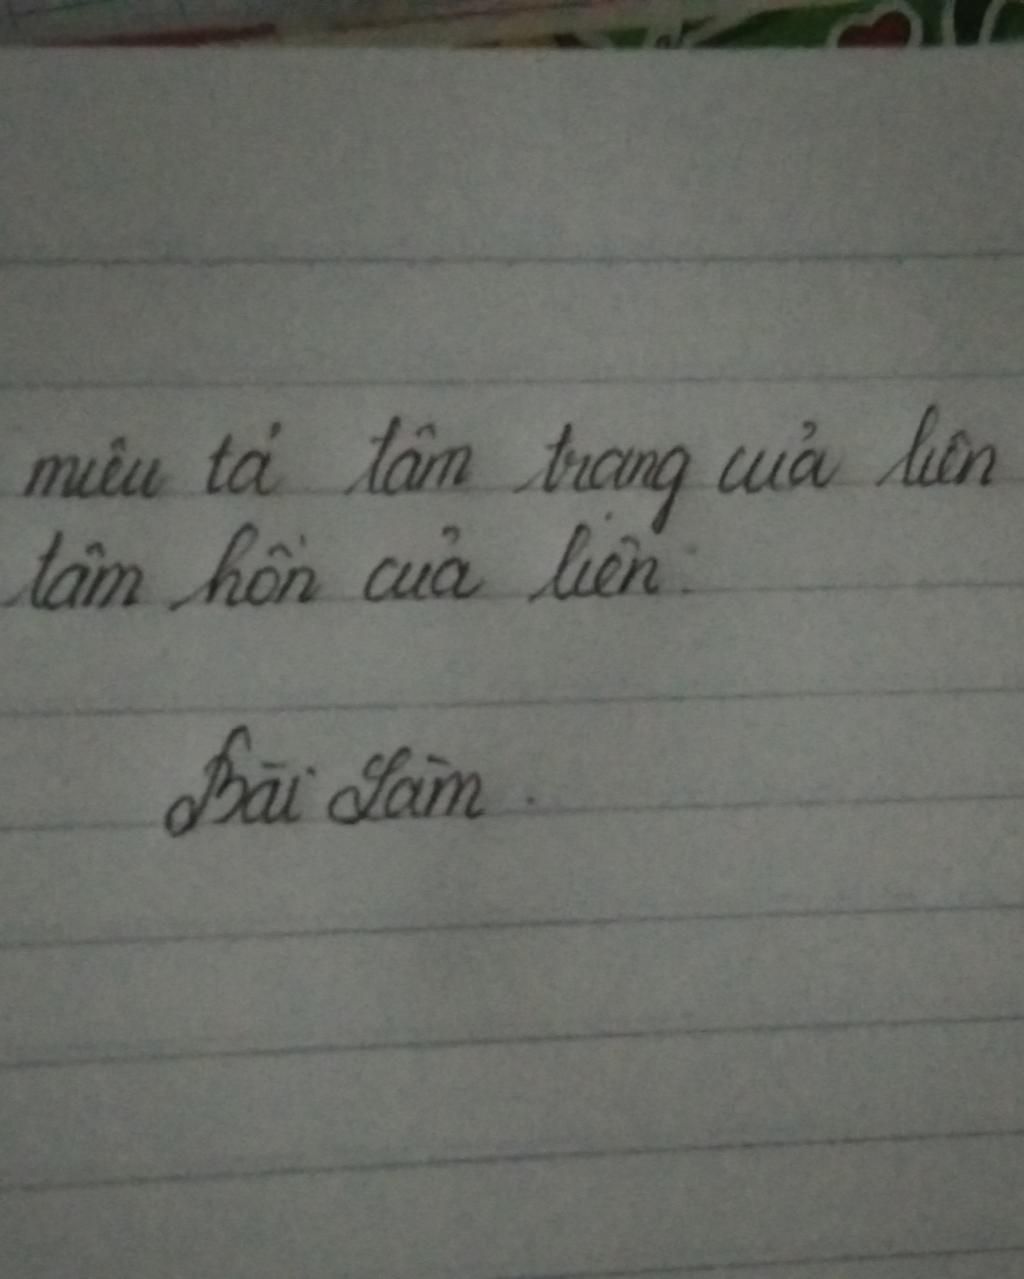 miêu tả tâm trạng của liên
tâm hồn của liên.
Bài Làm.